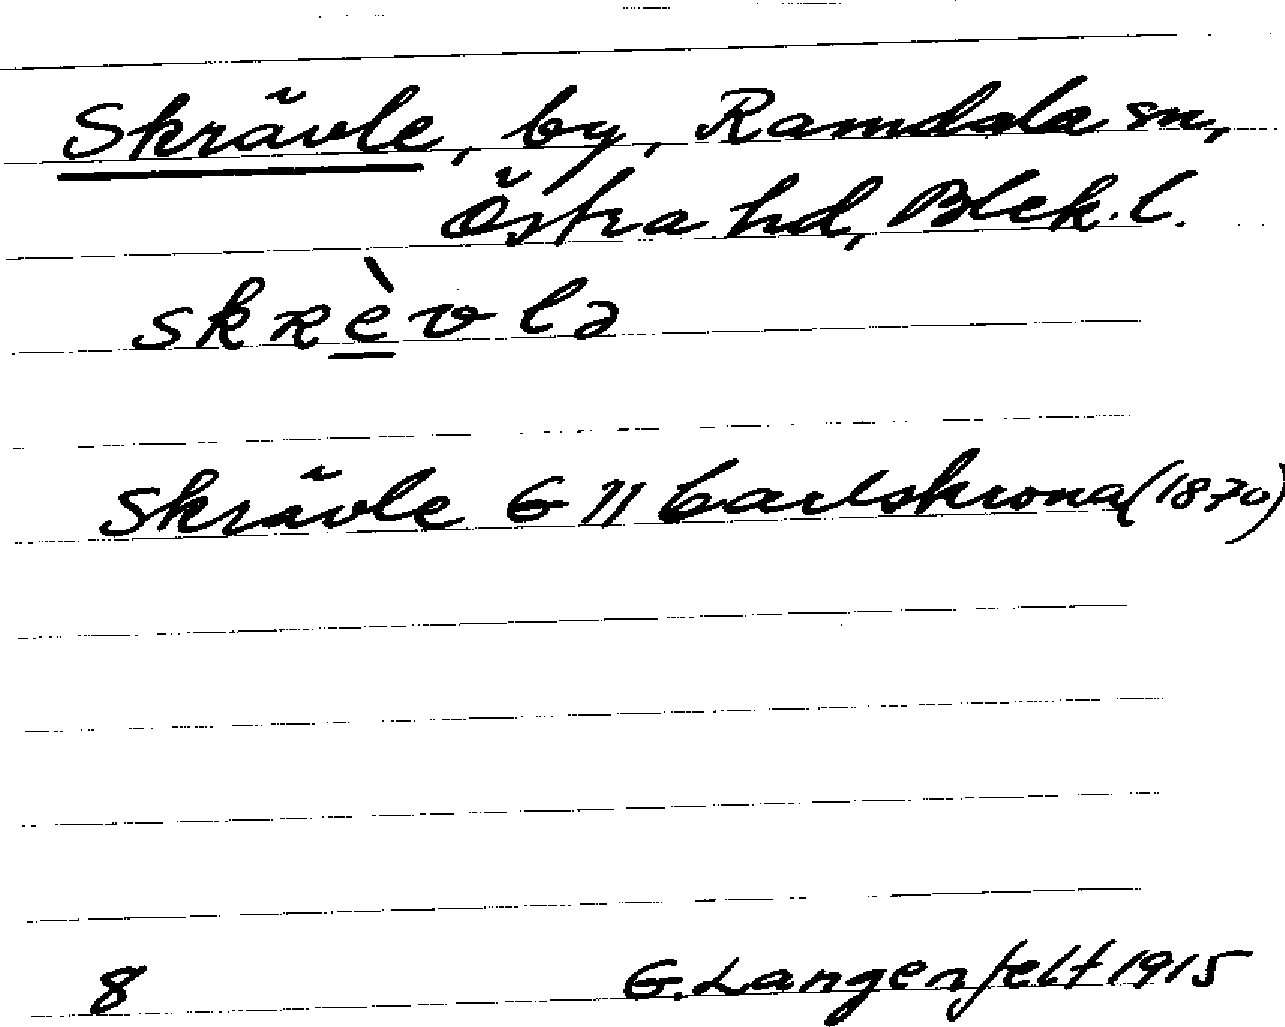 Skrävle, by, Ramdala sn,
Östra hd, Blek. l.
skrèvlə
Skrävle G 11 Carlskrona (1870)
8 G. Langenfelt 1915